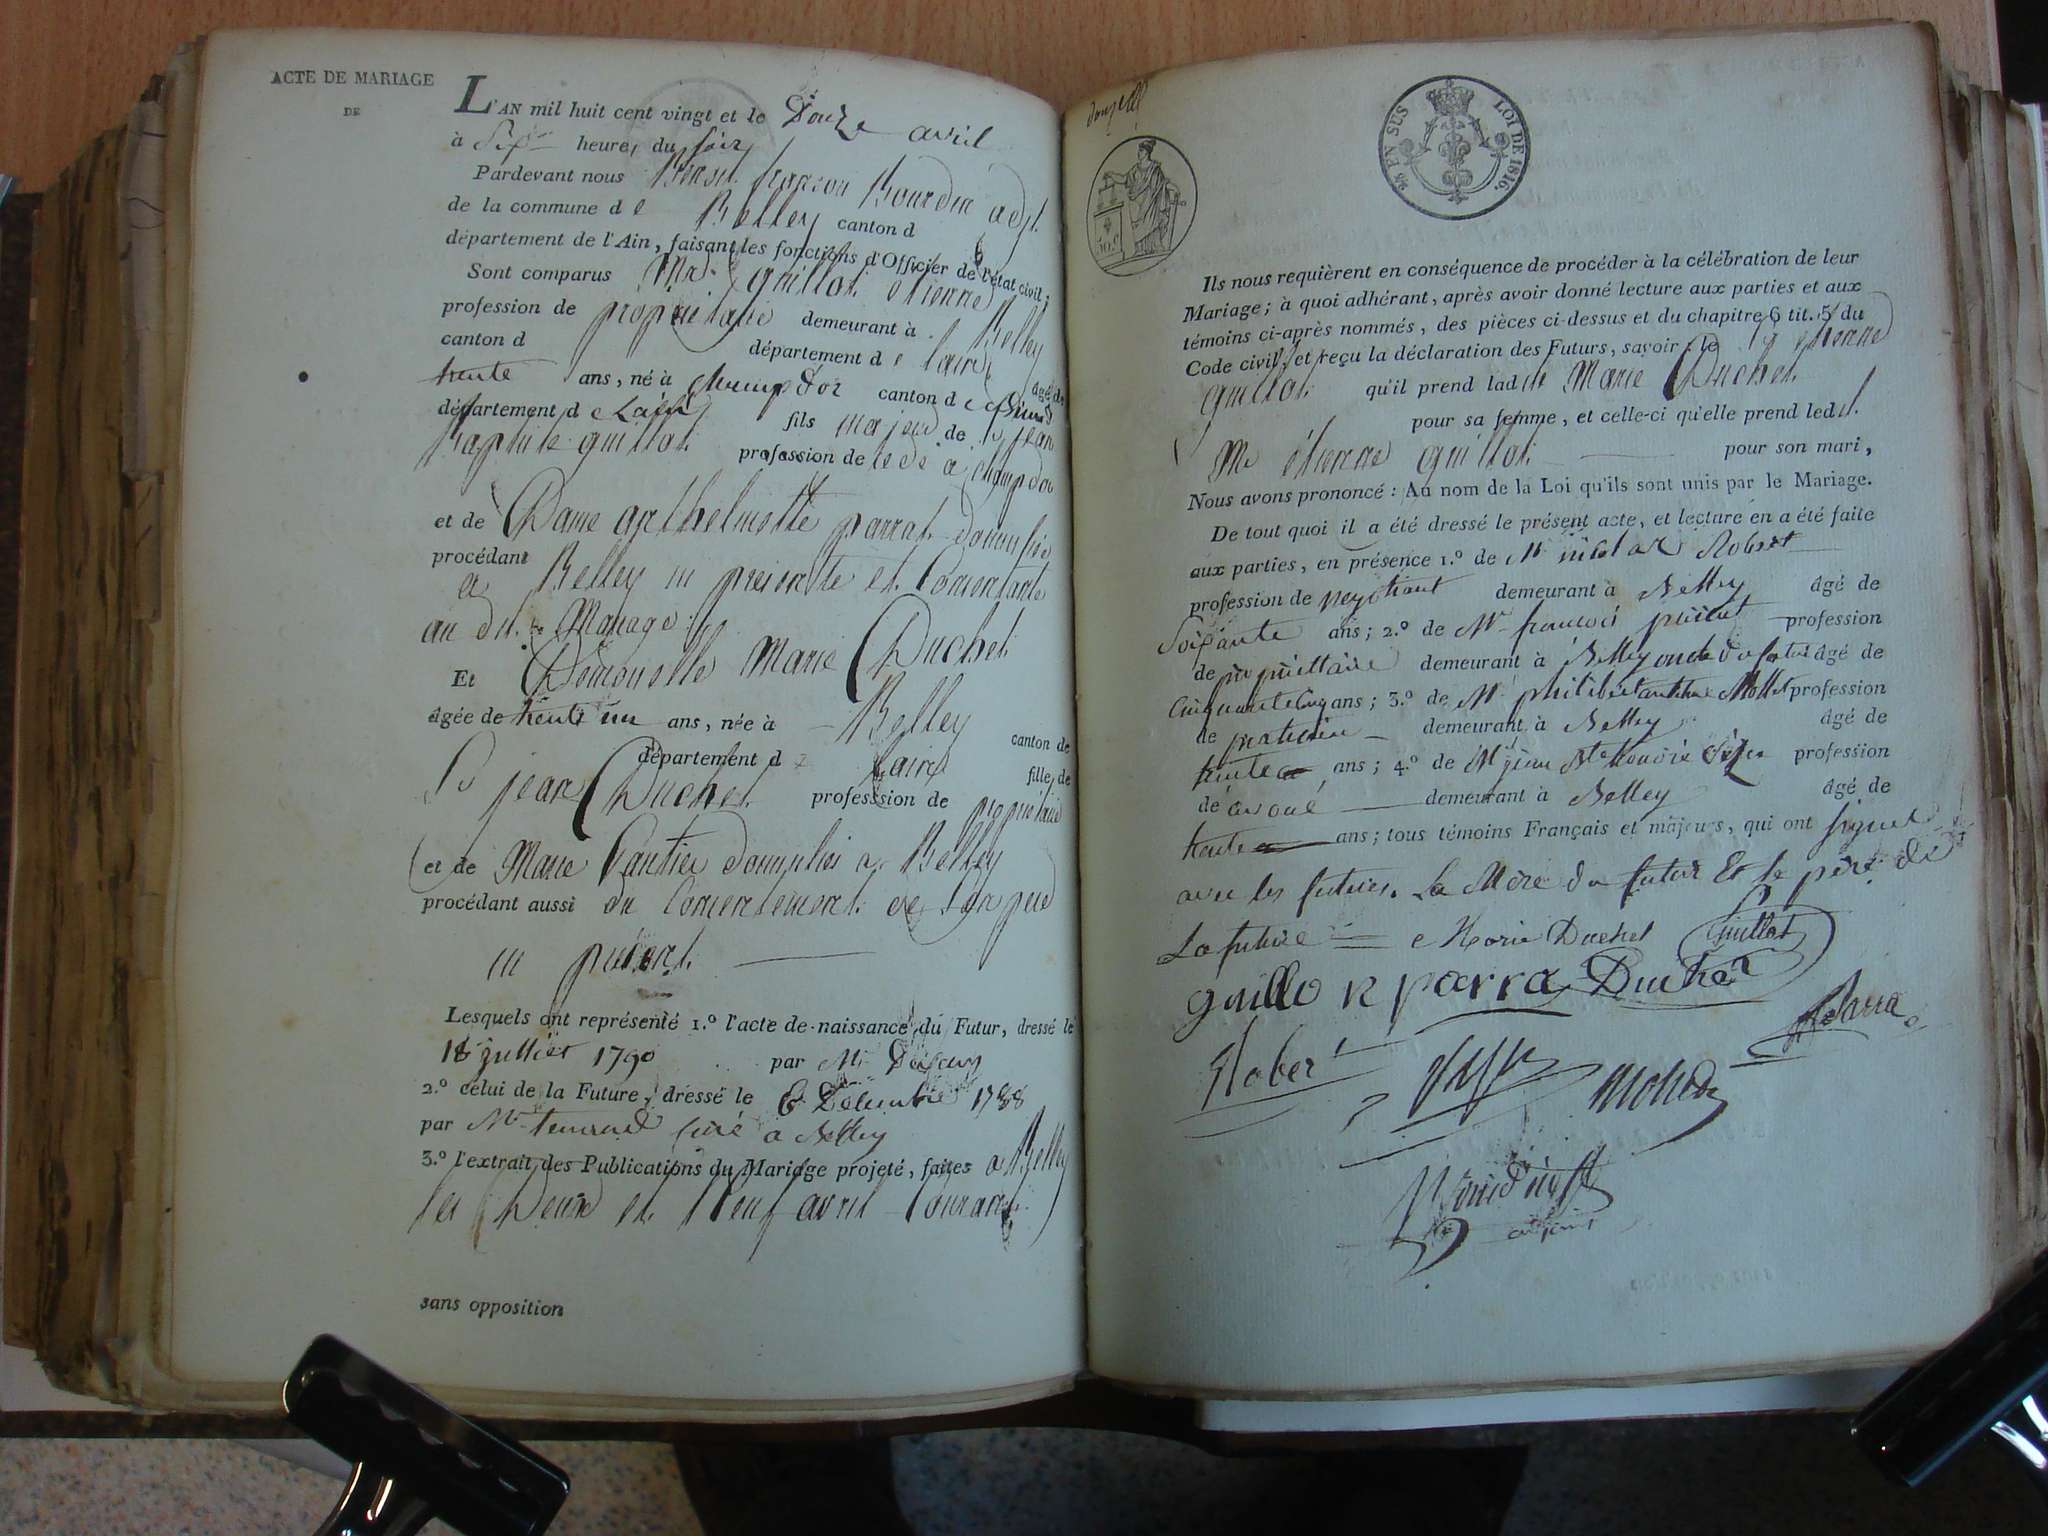 ACTE DE MARIAGE
DE
L'AN mil huit cent vingt et le Douze avril
à Six heure, du soir
Pardevant nous françois Bourdin adjt.
de la commune d e Belley canton d
département de l'Ain, faisant les fonctions d'Officier de l'état civil;
Sont comparus Mr. guillot étienne
profession de propriétaire demeurant à Belley
canton d département d e lain âgé de
trente ans, né à champdor canton d
département d e Lain fils majeur de Sr jean
Baptiste guillot profession de à champdor
et de Dame anthelmette parrat domiciliée
procédant
a Belley ici présente et Consentante
au dit Mariage
Et Demoiselle Marie Duchet
âgée de trente un ans, née à Belley canton de
département d lain fille de
Sr jean Duchet profession de propriétaire
et de Marie Gautier domiciliés a Belley
procédant aussi du Consentement de son père
ici présent
Lesquels ont représenté 1.º l'acte de naissance du Futur, dressé le
18 juillet 1790 par Mr
2.º celui de la Future, dressé le 6 Décembre 1788
par Mr curé a Belley
3.º l'extrait des Publications du Mariage projeté, faites a Belley
les Deux et Neuf avril Courant
sans opposition
25 EN SUS LOI DE 1816.
Ils nous requièrent en conséquence de procéder à la célébration de leur
Mariage; à quoi adhérant, après avoir donné lecture aux parties et aux
témoins ci-après nommés, des pièces ci-dessus et du chapitre 6 tit. 5 du
Code civil, et reçu la déclaration des Futurs, savoir: le Sr étienne
guillot qu'il prend lad ite Marie Duchet
pour sa femme, et celle-ci qu'elle prend led it
Mr étienne guillot pour son mari,
Nous avons prononcé: Au nom de la Loi qu'ils sont unis par le Mariage.
De tout quoi il a été dressé le présent acte, et lecture en a été faite
aux parties, en présence 1.º de Mr nicolas Robert
profession de negotiant demeurant à Belley âgé de
Soixante ans; 2.º de Mr françois profession
de propriettaire demeurant à Belley oncle du futur âgé de
Cinquante cinq ans; 3.º de Mr philibert anthelme Mollet profession
de praticien demeurant à Belley âgé de
trente ans; 4.º de Mr jean Bte honoré profession
de avoué demeurant à Belley âgé de
trente ans; tous témoins Français et majeurs, qui ont signet
avec les futurs. La Mère du futur Et le père de
La future Marie Duchet Guillot
guillo n parra Duchet
Parra
Rober
Mollet
Bourdin
adjoint